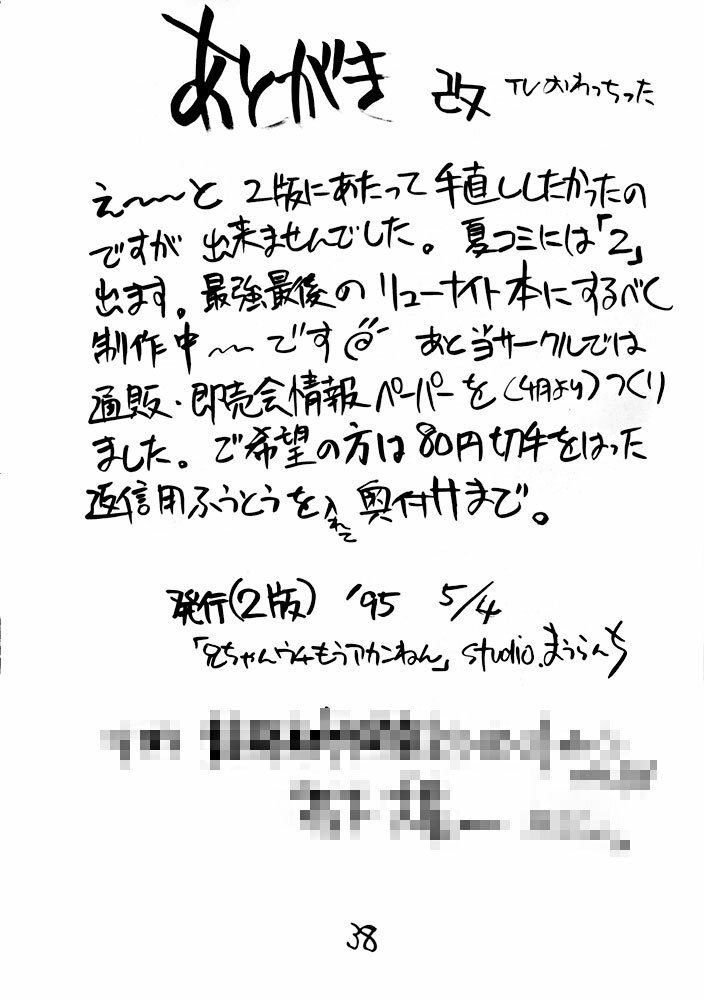 あとがき 改 TVおわっちった
え〜〜と 2版にあたって手直ししたかったの
ですが 出来ませんでした。夏コミには「2」
出ます。最強最後のリューナイト本にするべく
制作中〜〜です あと当サークルでは
通販・即売会情報ペーパーを(4月より)つくり
ました。ご希望の方は80円切手をはった
返信用ふうとうを入れて奥付けまで。
発行(2版) '95 5/4
「兄ちゃんウチもうアカンねん」studio.まうらんち
38